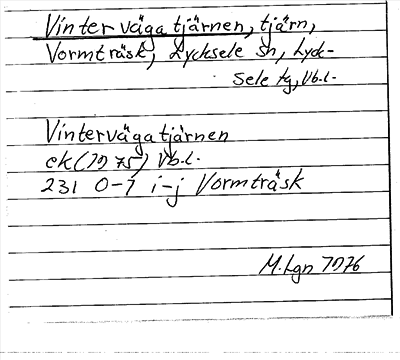 Vintervägatjärnen, tjärn,
Vormträsk, Lycksele sn, Lyck-
sele tg, Vb.l.
Vintervägatjärnen
ek (1975) Vb.l.
231 0-1 i-j Vormträsk
M. Lgn 1976